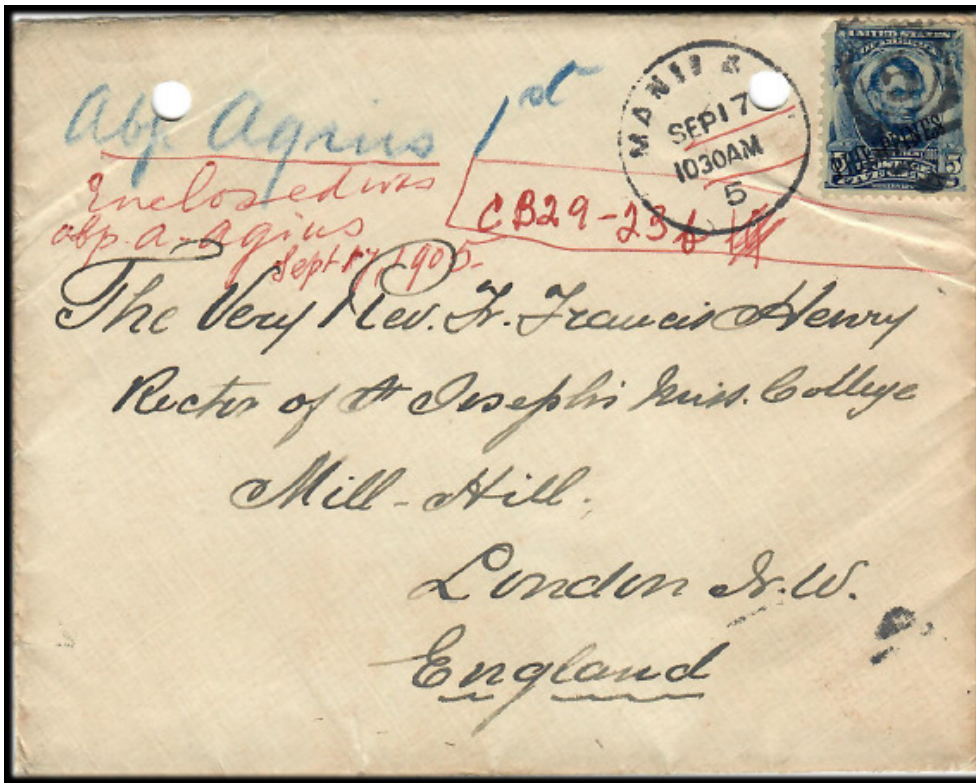 Abp. Agius 1st
MANILA
SEP 17
1030AM
5
UNITED STATES
OF AMERICA
PHILIPPINES
5 5
Enclosed was
abp. A. Agius
Sept 17, 1905-
CB29-23
The Very Rev. Fr. Francis Henry
Rector of St Joseph's Miss. College
Mill-Hill.
London N.W.
England